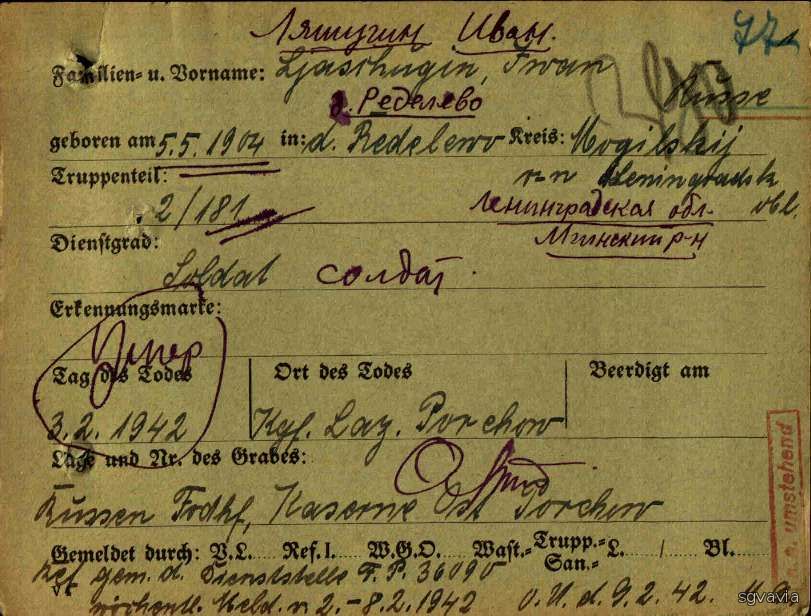 Ляшугин Иван.
77
Familien- u. Vorname: Ljaschugin, Iwan
д. Ределево
Russe
geboren am 5.5.1904 in: d. Redelewo Kreis: Mogilskij
Truppenteil: r-n Leningradsk.
2/181 Ленинградская обл. obl.
Dienstgrad: Мгинский р-н
Soldat солдат.
Erkennungsmarke:
Умер
Tag des Todes Ort des Todes Beerdigt am
3.2.1942 Kgf. Laz. Porchow
Lage und Nr. des Grabes:
Russen Frdhf, Kaserne Ost Porchow
Gemeldet durch: V.L. Ref.I. W.G.O. Wast.- Trupp.- San.- L. / Bl.
Kgf gem. d. Dienststelle F.P. 36090
wöchentl. Meld. v. 2.-8.2.1942 o.U.d. 9.2.42.
umstehend
sgvavia